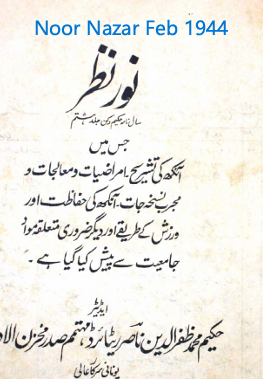 Noor Nazar Feb 1944
نور نظر
سالنامہ حکیم دکن جلد ہشتم
جس میں
آنکھ کی تشریح۔ امراضیات و معالجات و
مجرب نسخہ جات۔ آنکھ کی حفاظت اور
ورزش کے طریقے اور دیگر ضروری متعلقہ مواد
جامعیت سے پیش کیا گیا ہے۔
ایڈیٹر
حکیم محمد ظفر الدین ناصر ریٹائرڈ مہتمم صدر مخزن الاد
یونانی سرکار عالی